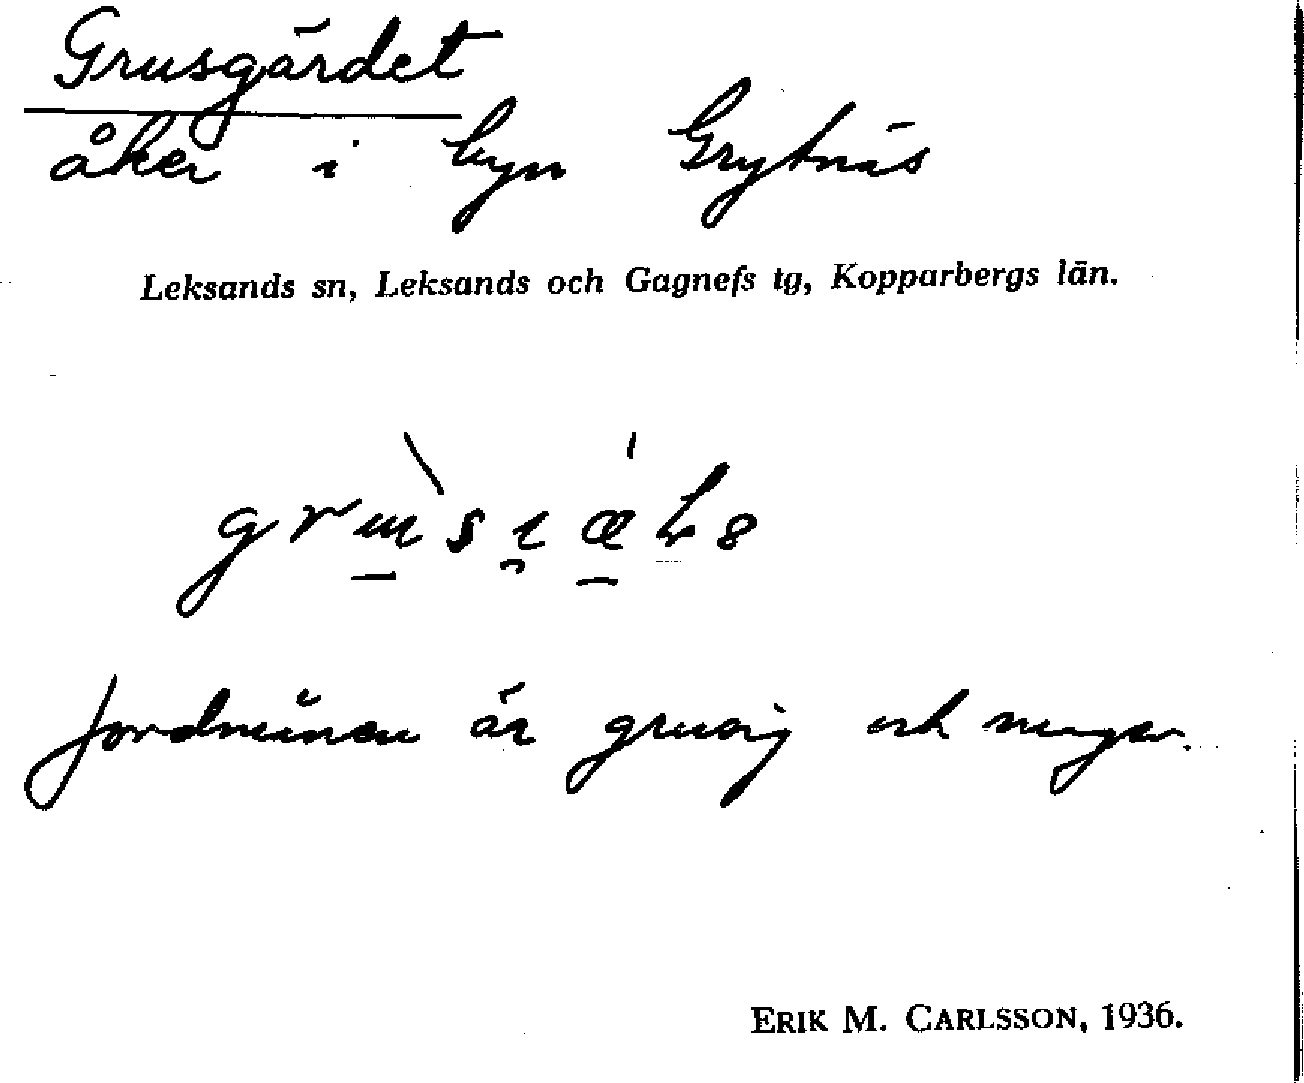 Grusgärdet
åker i byn Grytnäs
Leksands sn, Leksands och Gagnefs tg, Kopparbergs län.
Jordmånen är grusig och mager.
ERIK M. CARLSSON, 1936.